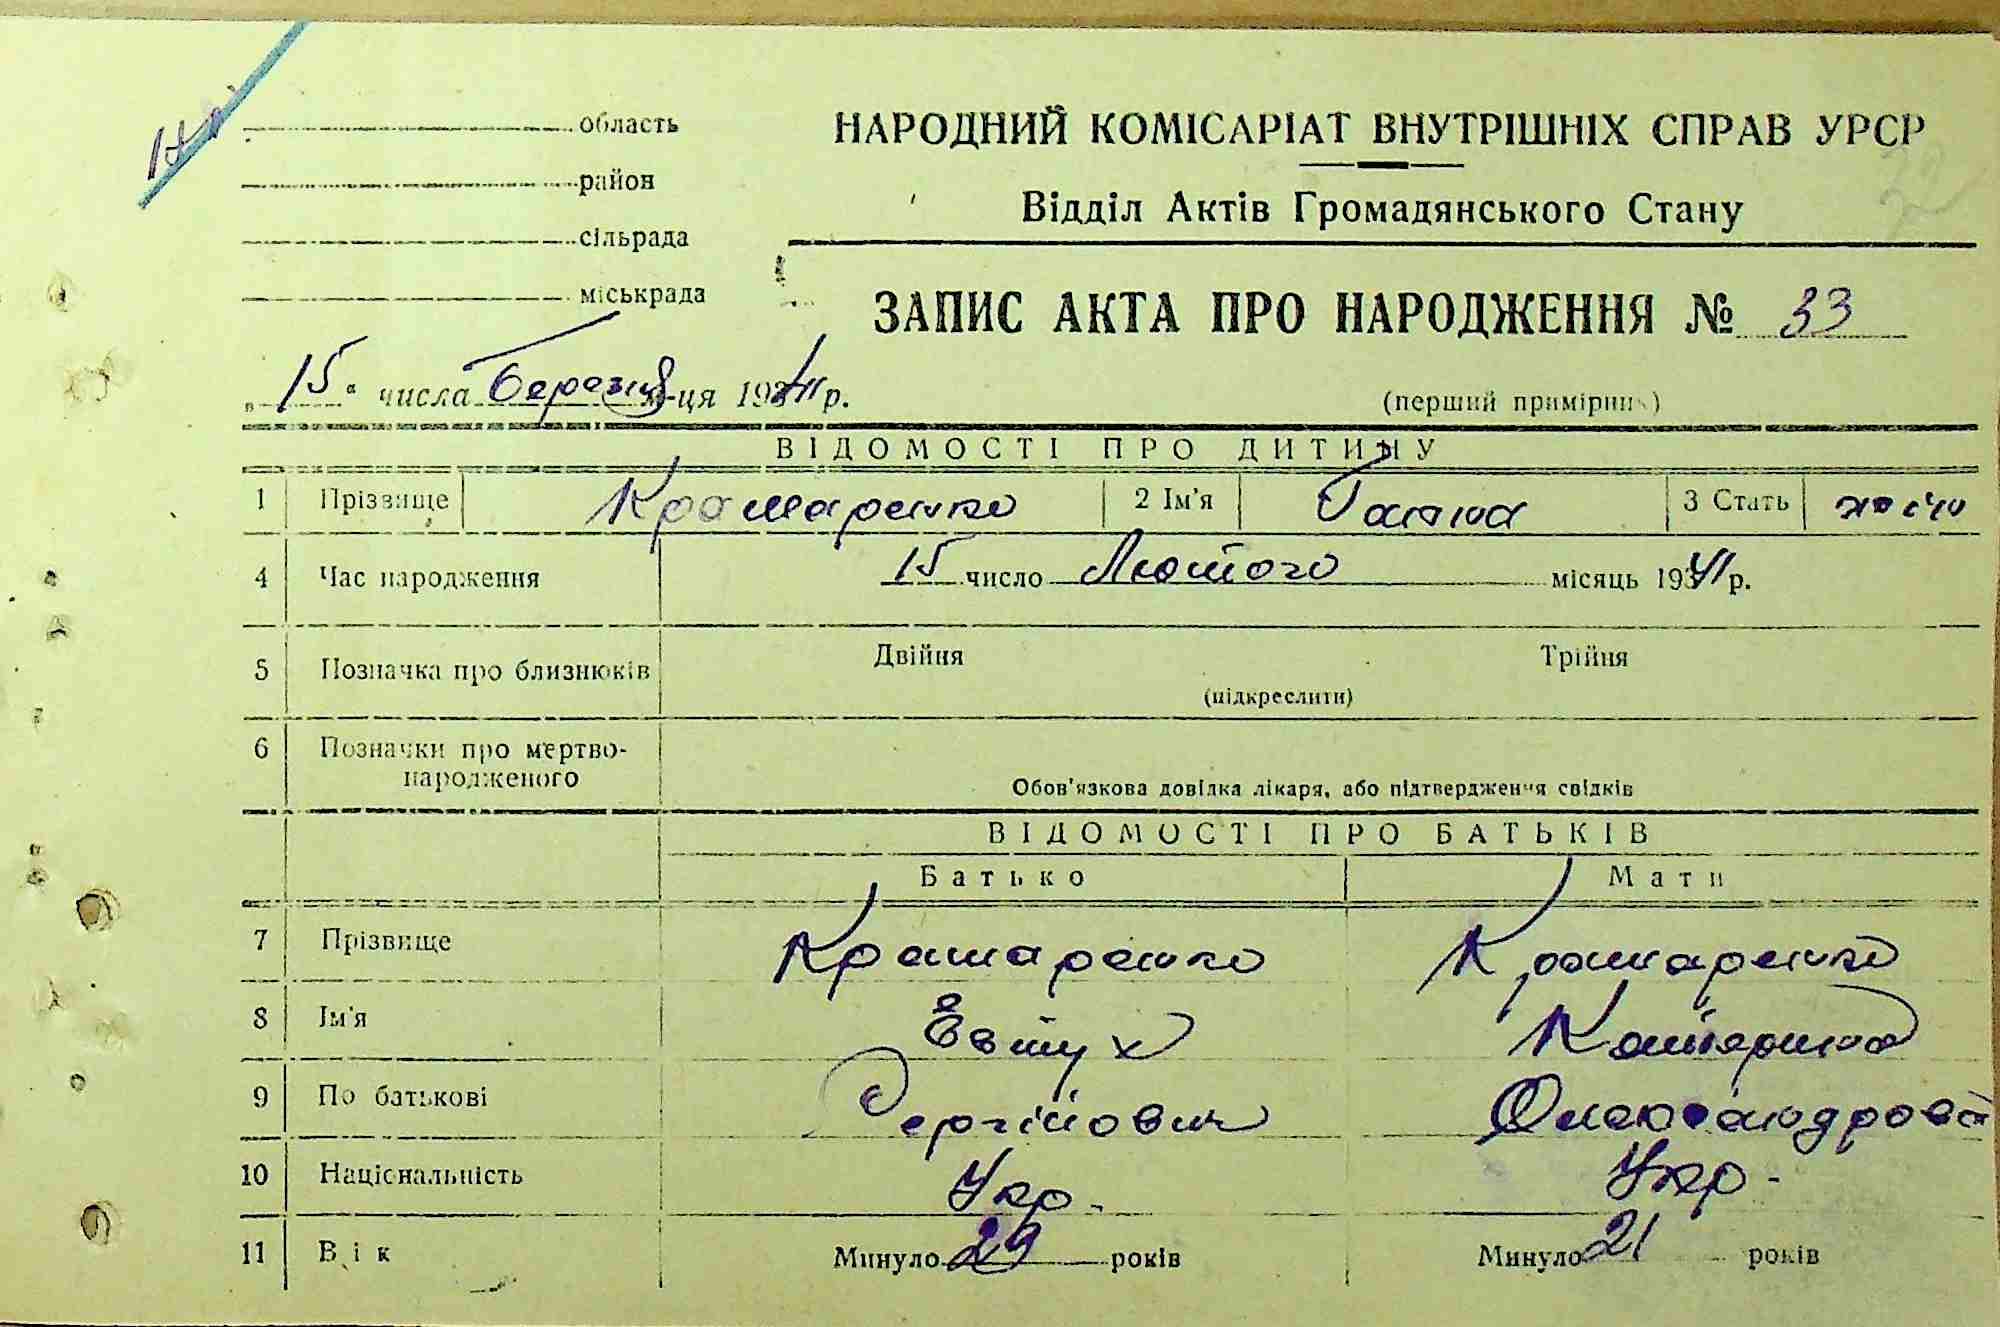 область
район
сільрада
міськрада
НАРОДНИЙ КОМІСАРІАТ ВНУТРІШНІХ СПРАВ УРСР
Відділ Актів Громадянського Стану
ЗАПИС АКТА ПРО НАРОДЖЕННЯ № 33
(перший примірник)
„15“ числа Березня м-ця 1941 р.
ВІДОМОСТІ ПРО ДИТИНУ
1 Прізвище Крамаренко 2 Ім'я Ганна 3 Стать жіно
4 Час народження 15 число Лютого місяць 1941 р.
5 Позначка про близнюків Двійня Трійня
(підкреслити)
6 Позначки про мертво-
народженого
Обов'язкова довідка лікаря, або підтвердження свідків
ВІДОМОСТІ ПРО БАТЬКІВ
Батько Мати
7 Прізвище Крамаренко Крамаренко
8 Ім'я Євтух Катерина
9 По батькові Сергійович Олександрова
10 Національність Укр. Укр.
11 Вік Минуло 29 років Минуло 21 років